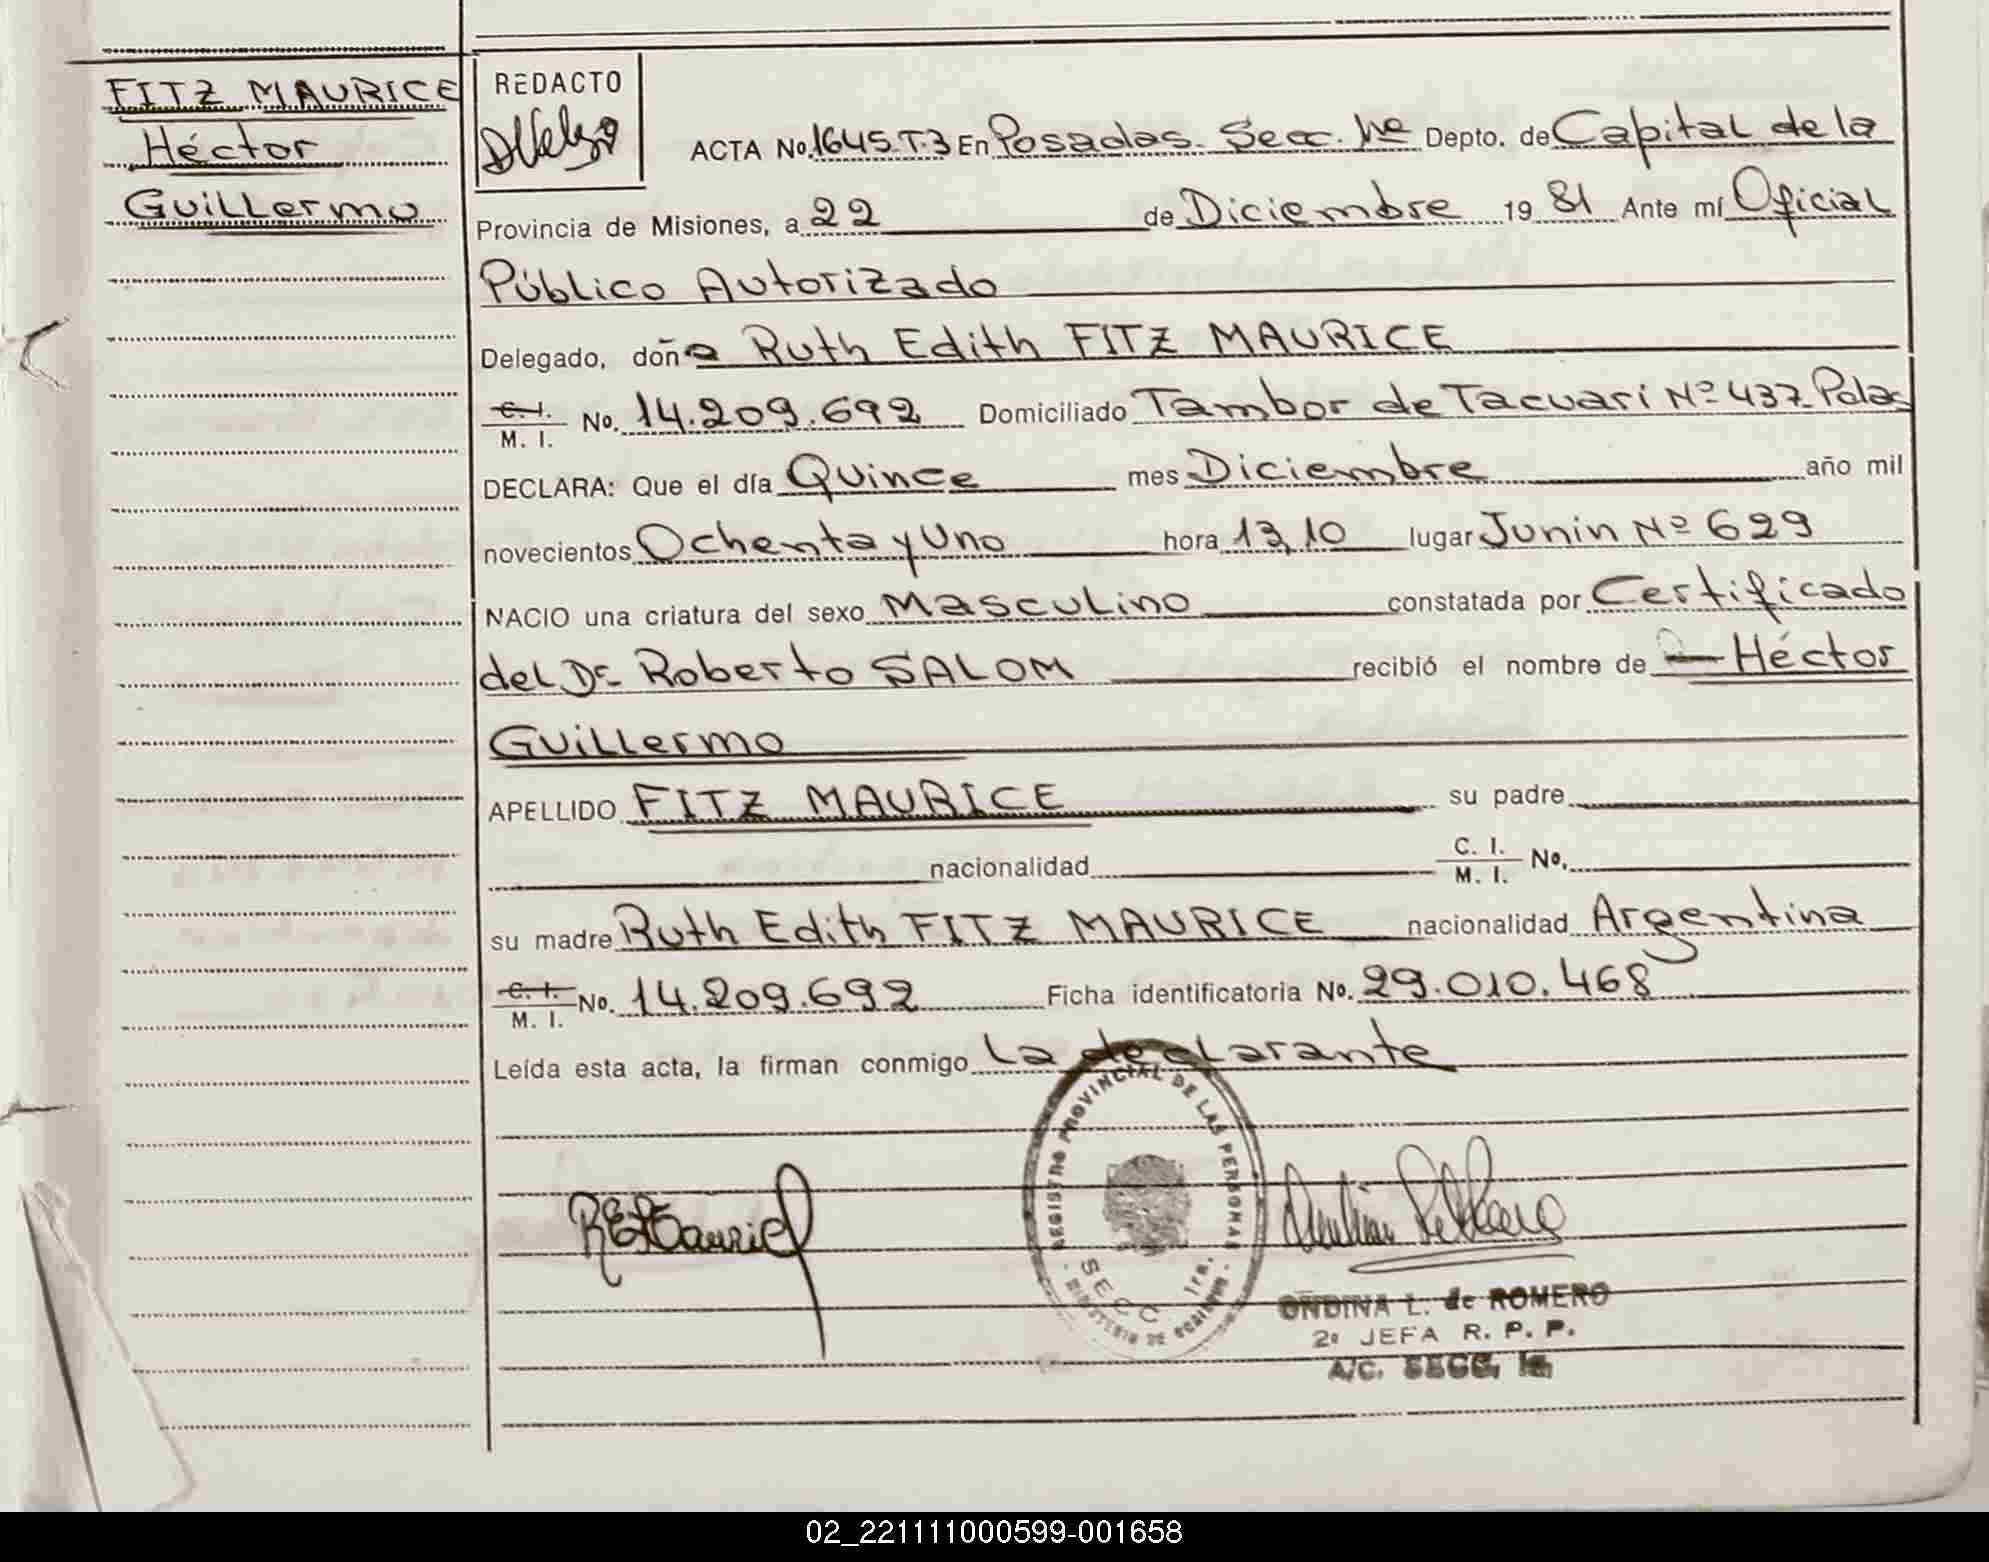 FITZ MAURICE
Héctor
Guillermo
REDACTO
ACTA No. 1645.T.3 En Posadas. Secc. 1ra Depto. de Capital de la
Provincia de Misiones, a 22 de Diciembre 19 81 Ante mí Oficial
Público Autorizado
Delegado, doña Ruth Edith FITZ MAURICE
C. I.
M. I. No. 14.209.692 Domiciliado Tambor de Tacuari Nº 437 Pdas
DECLARA: Que el día Quince mes Diciembre año mil
novecientos Ochenta y Uno hora 13,10 lugar Junin Nº 629
NACIO una criatura del sexo Masculino constatada por Certificado
del Dr. Roberto SALOM recibió el nombre de Héctor
Guillermo
APELLIDO FITZ MAURICE su padre
nacionalidad C. I.
M. I. No.
su madre Ruth Edith FITZ MAURICE nacionalidad Argentina
C. I.
M. I. No. 14.209.692 Ficha identificatoria No. 29.010.468
Leída esta acta, la firman conmigo La declarante
REGISTRO PROVINCIAL DE LAS PERSONAS
SECC 1ra.
MINISTERIO DE GOBIERNO
ONDINA L. de ROMERO
2ª JEFA R. P. P.
A/C. SECC. 1a.
02_221111000599-001658